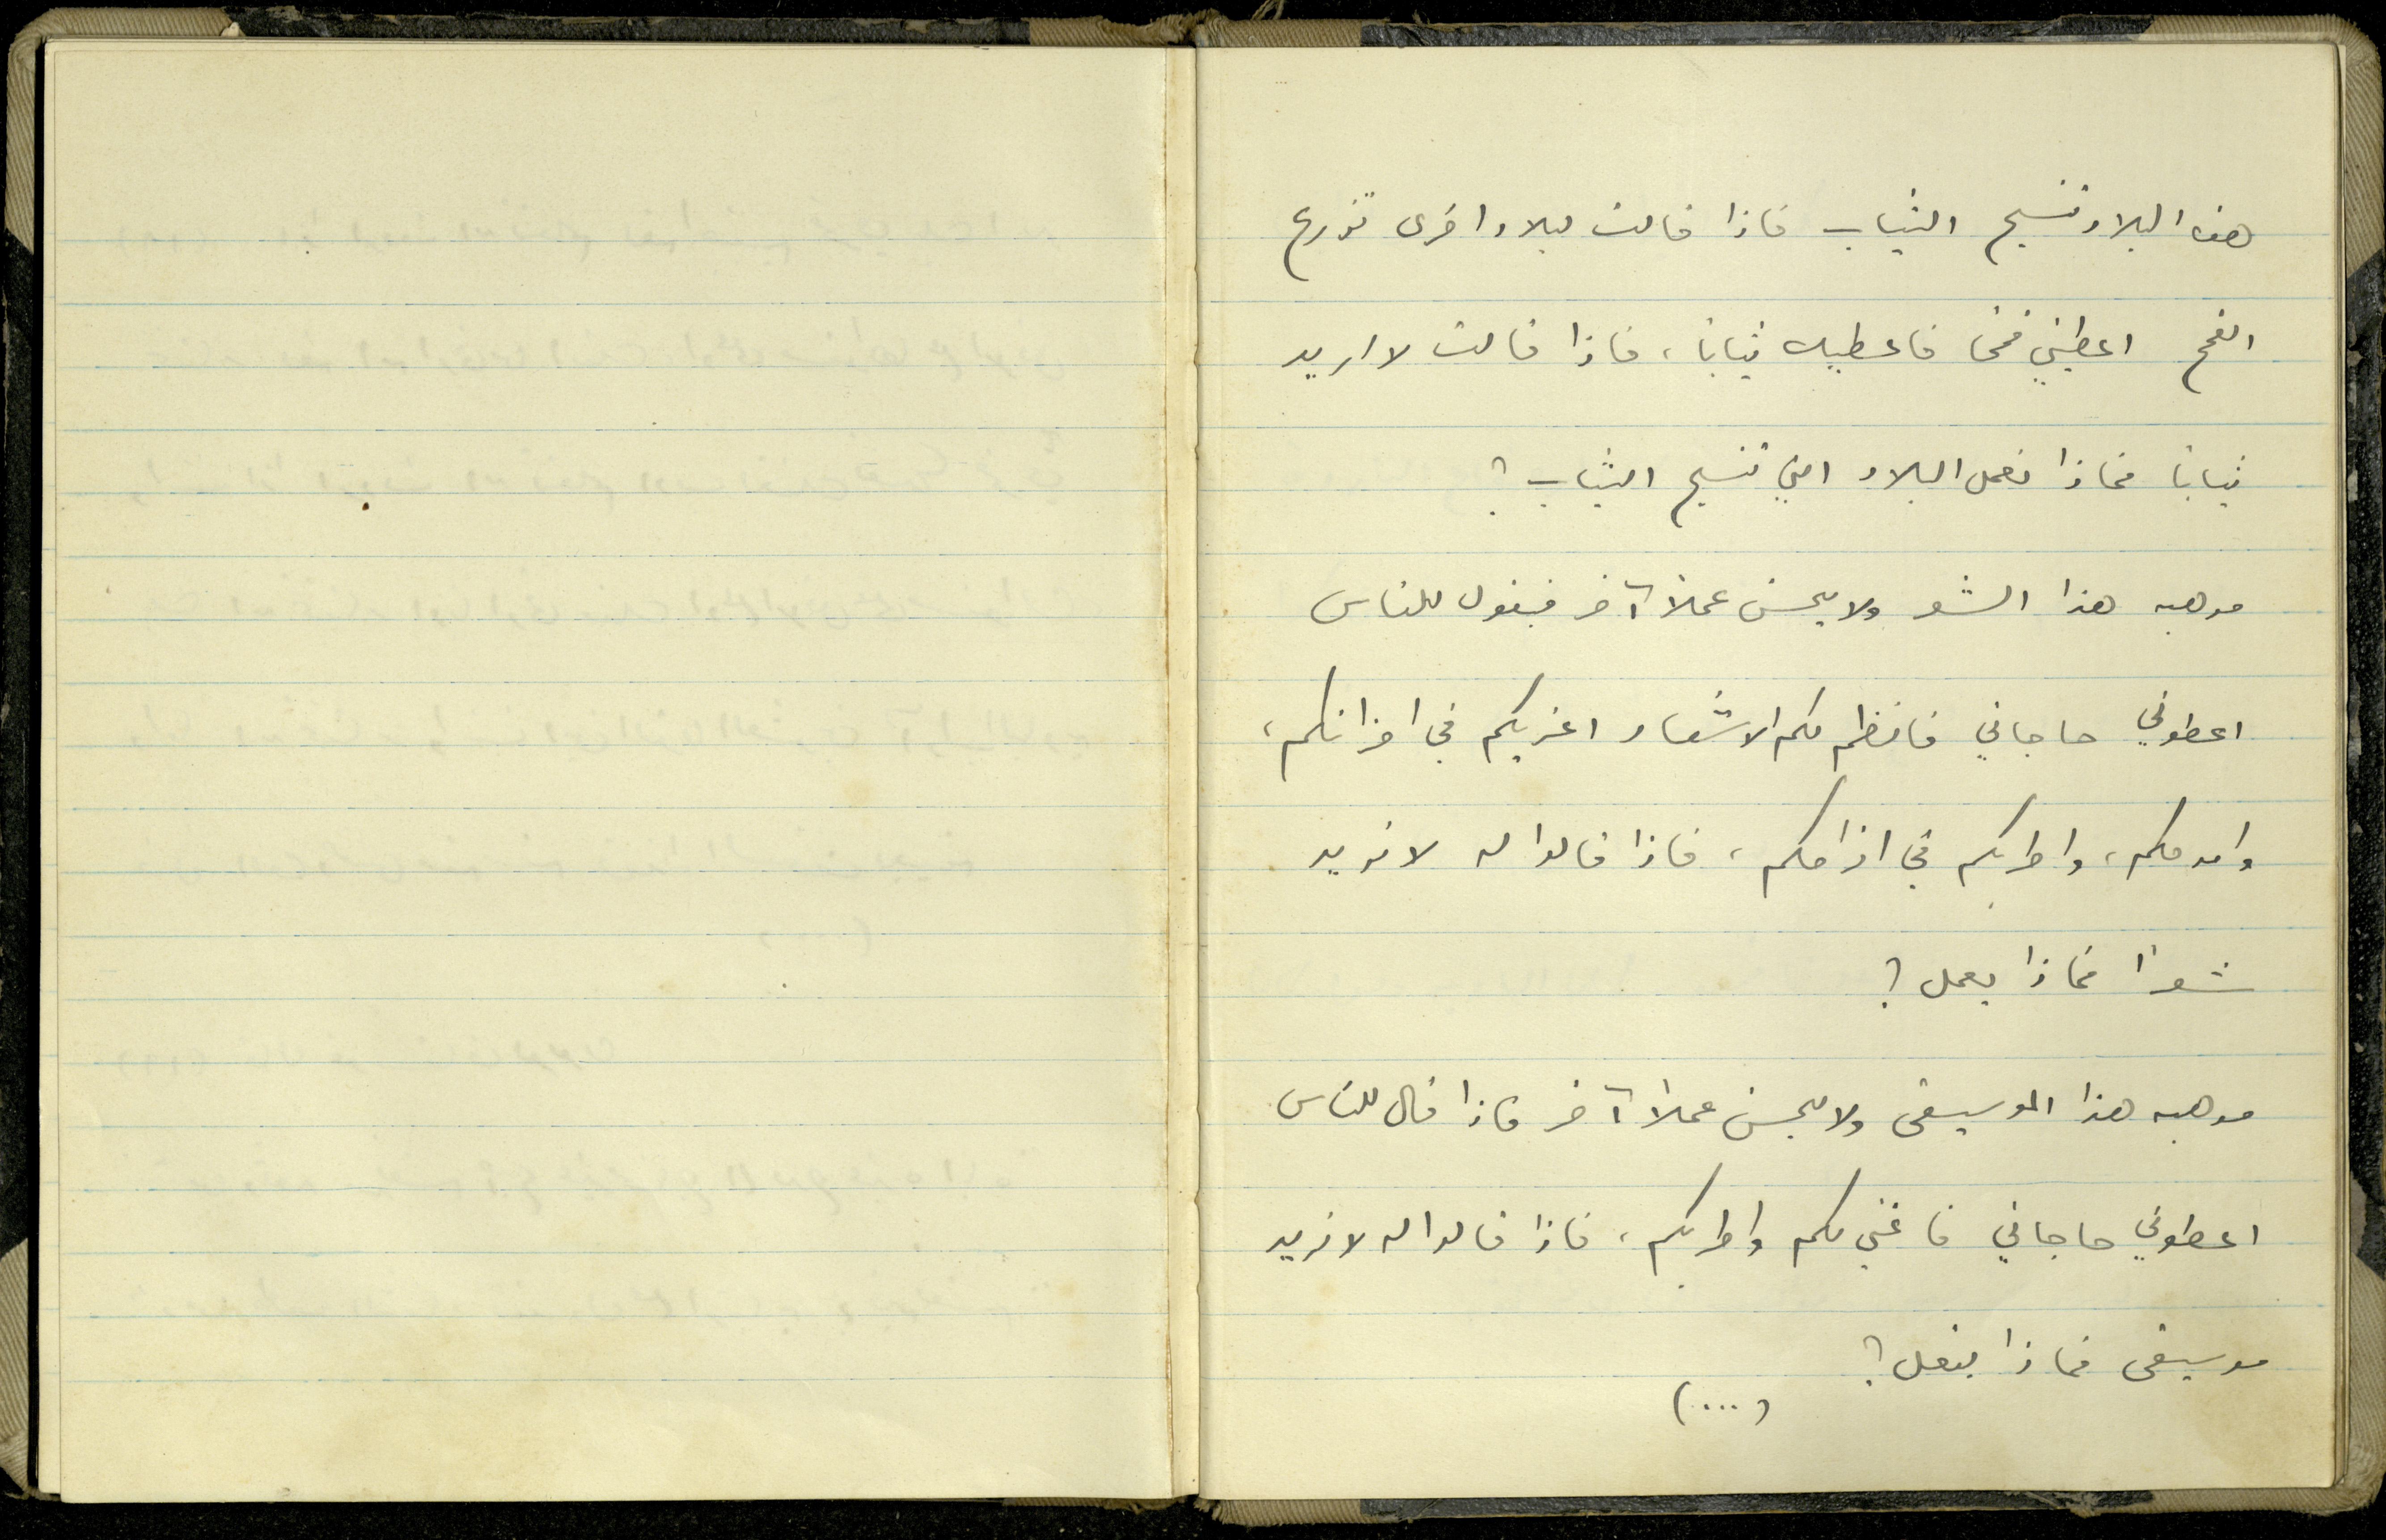 هذه البلاد تنسج الثياب فاذا قالت لبلاد اخرى تزرع
القمح اعطيني قمحا فاعطيك ثيابا، فاذا قالت لا اريد
ثيابا فماذا تعمل البلاد التي تنسج الثياب؟
موهبه هذا الشعر ولا يحسن عملاً آخر فيقول للناس
اعطوني حاجاتي فانظم لكم الاشعار اعزيكم في احزانكم،
وامدحكم، واطربكم في افراحكم، فاذا قالوا له لا نريد
شعراً فماذا يعمل؟
موهبه هذا الموسيقى ولا يحسن عملاً آخر فاذا قال للناس
اعطوني حاجاتي فاغني لكم واطربكم، فاذا قالوا له لا نريد
موسيقى فماذا يفعل؟
(...)